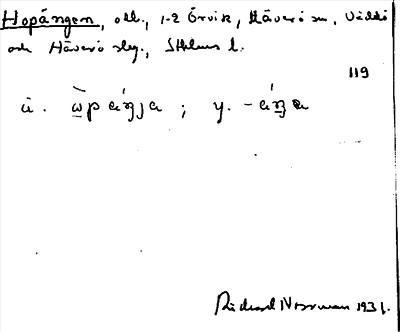 Hopängen, ott., 1-2 Örvik, Häverö sn, Väddö
och Häverö slg., Sthlms l.
119
ä. ; y.
Rickard Norrman 1931.